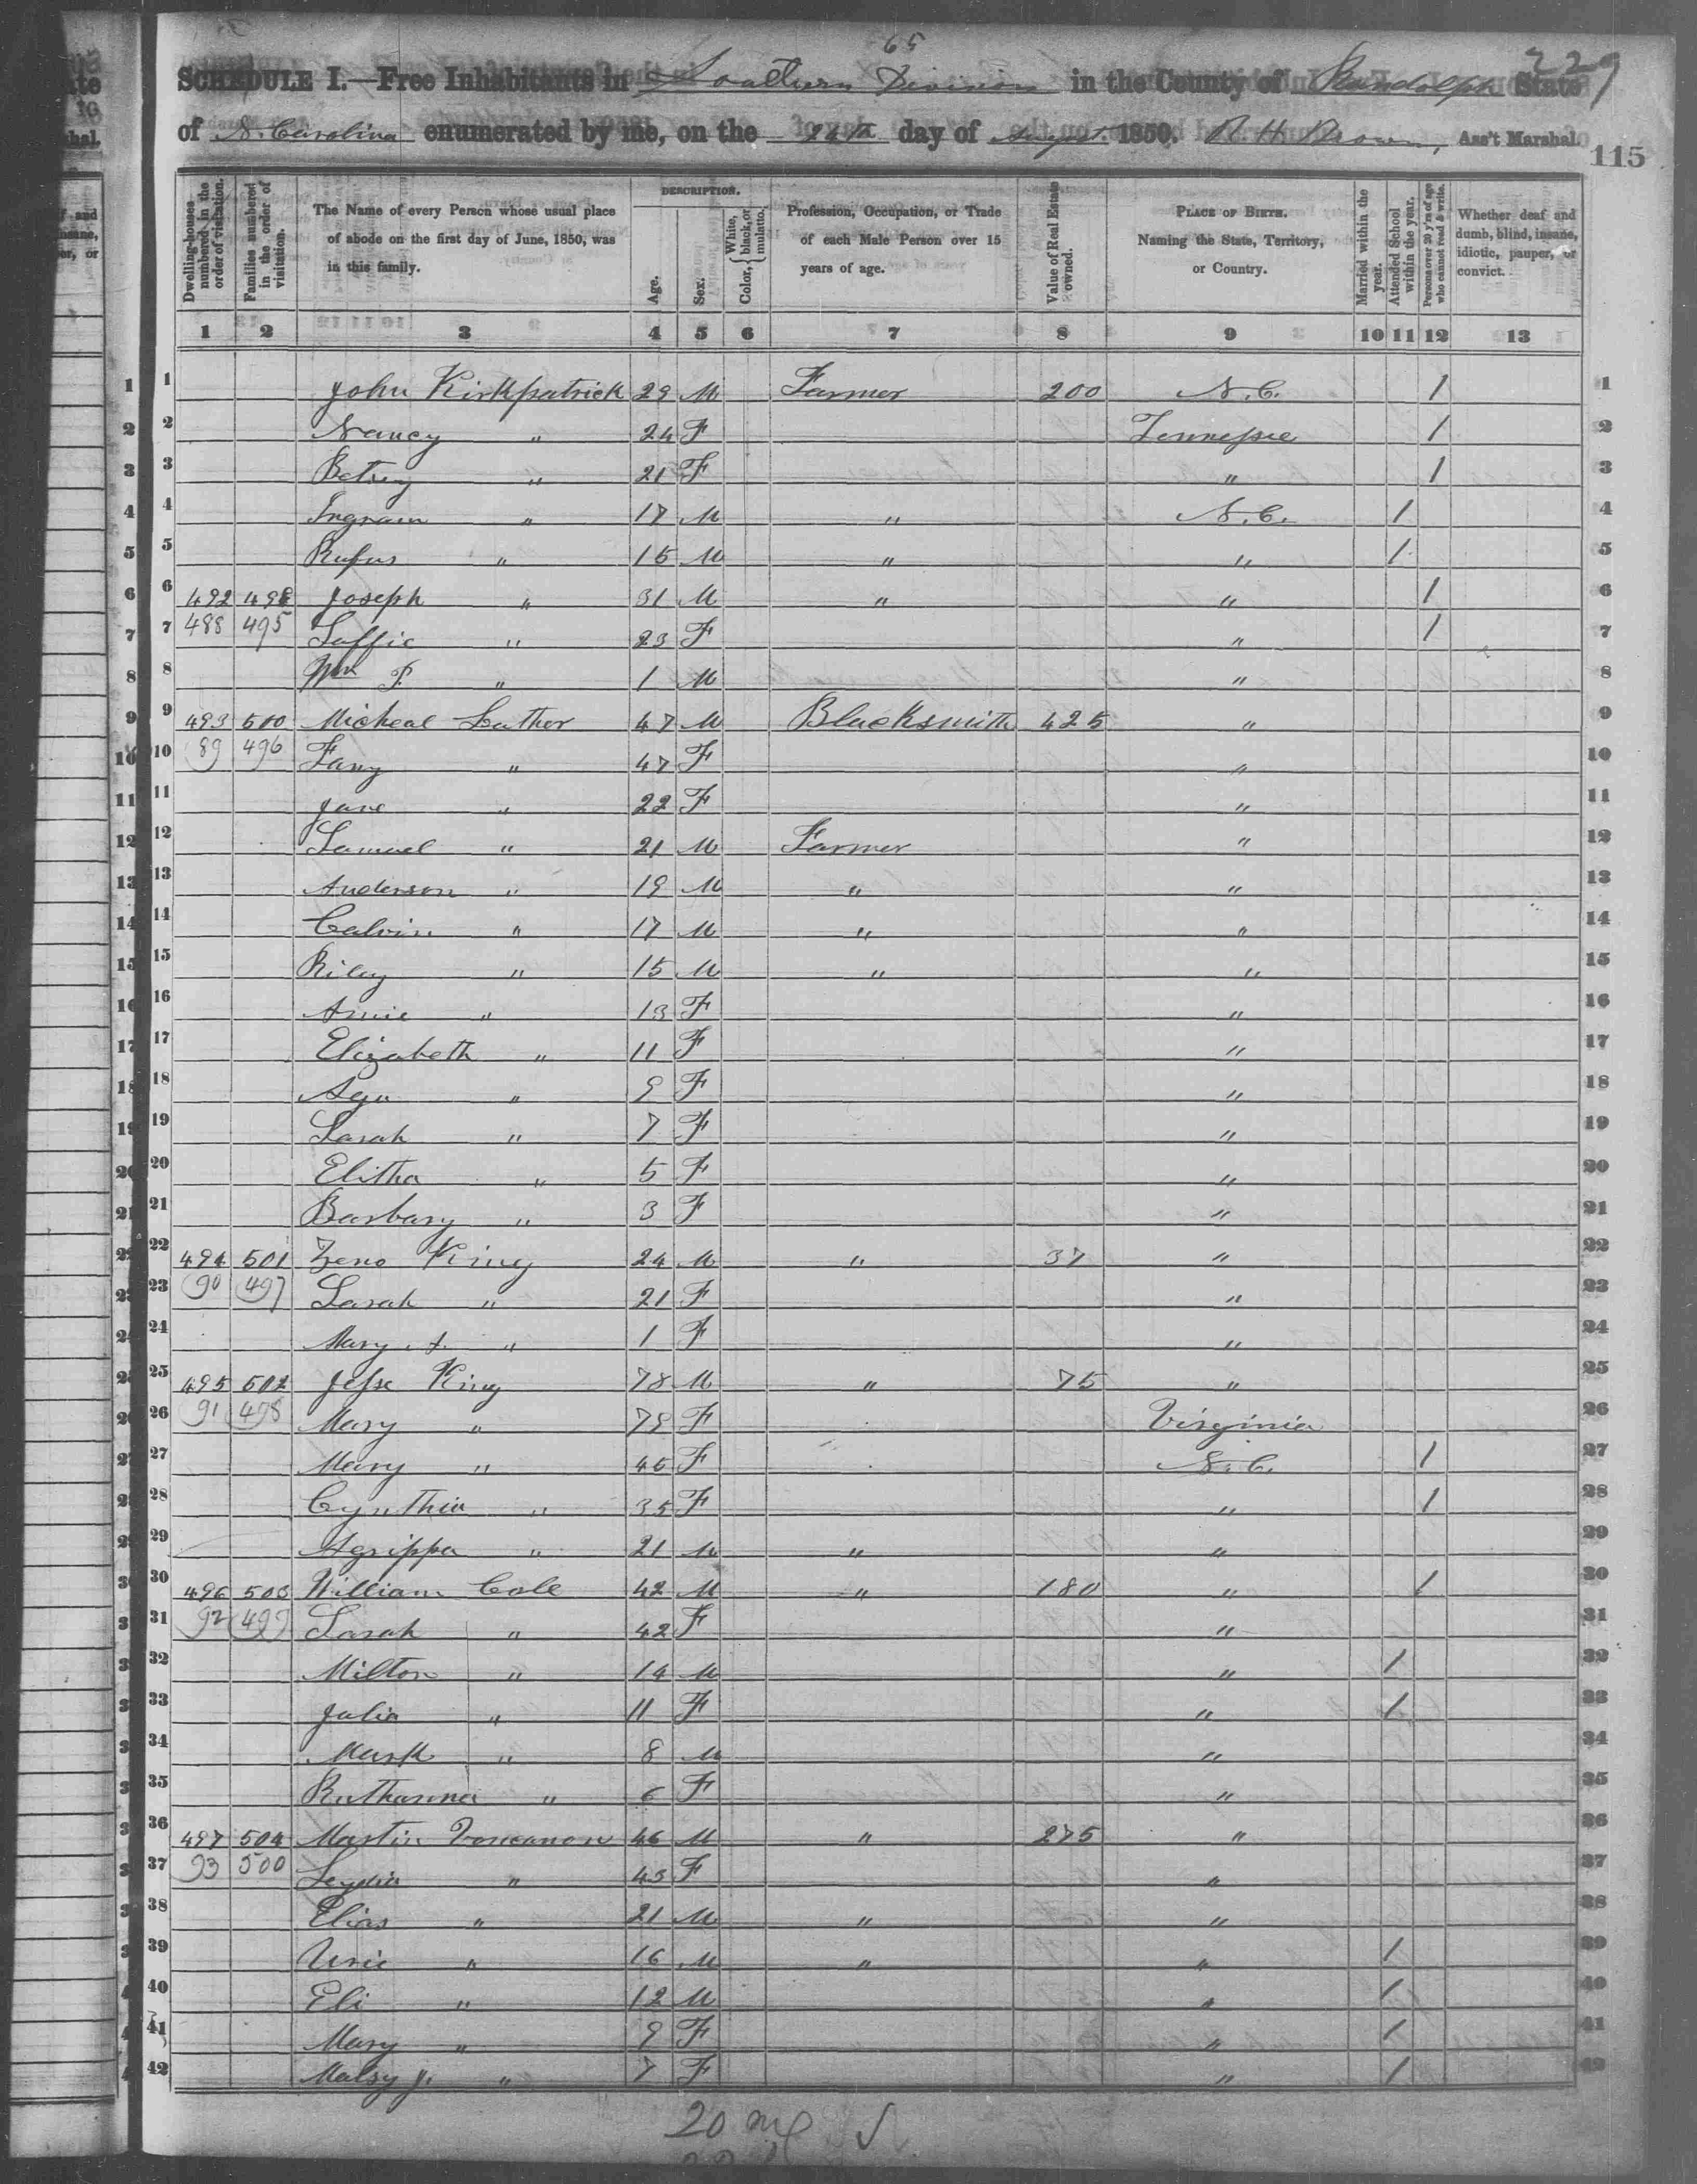 65
229
SCHEDULE I.—Free Inhabitants in Southern Division in the County of Randolph State
of N. Carolina enumerated by me, on the 26th day of August 1850. R. H. Brown, Ass't Marshal.
115
Dwelling-houses numbered in the order of visitation.
Families numbered in the order of visitation.
The Name of every Person whose usual place of abode on the first day of June, 1850, was in this family.
DESCRIPTION.
Age.
Sex.
Color, { White, black, or mulatto.
Profession, Occupation, or Trade of each Male Person over 15 years of age.
Value of Real Estate owned.
PLACE OF BIRTH. Naming the State, Territory, or Country.
Married within the year.
Attended School within the year.
Persons over 20 y'rs of age who cannot read & write.
Whether deaf and dumb, blind, insane, idiotic, pauper, or convict.
1 2 3 4 5 6 7 8 9 10 11 12 13
1 John Kirkpatrick 29 M Farmer 200 N.C. / 1
2 Nancy " 24 F Tennessee / 2
3 Betsey " 21 F " / 3
4 Ingram " 17 M " N.C. / 4
5 Rufus " 15 M " " / 5
6 492 499 Joseph " 31 M " " / 6
7 488 495 Saffie " 23 F " / 7
8 Wm P. " 1 M " 8
9 493 500 Micheal Luther 47 M Blacksmith 425 " 9
10 89 496 Fany " 47 F " 10
11 Jane " 22 F " 11
12 Samuel " 21 M Farmer " 12
13 Anderson " 19 M " " 13
14 Calvin " 17 M " " 14
15 Riley " 15 M " " 15
16 " 13 F " 16
17 Elizabeth " 11 F " 17
18 " 9 F " 18
19 Sarah " 7 F " 19
20 Elitha " 5 F " 20
21 Barbary " 3 F " 21
22 494 501 Zeno King 24 M " 37 " 22
23 90 497 Sarah " 21 F " 23
24 Mary A. " 1 F " 24
25 495 502 Jesse King 78 M " 75 " 25
26 91 498 Mary " 79 F Virginia 26
27 Mary " 46 F N.C. / 27
28 Cynthia " 35 F " / 28
29 Agrippa " 21 M " " 29
30 496 503 William Cole 42 M " 180 " / 30
31 92 499 Sarah " 42 F " 31
32 Milton " 14 M " / 32
33 Julia " 11 F " / 33
34 Mark " 8 M " 34
35 Ruthanna " 6 F " 35
36 497 504 Martin Voncanon 46 M " 275 " 36
37 93 500 Leydia " 43 F " 37
38 Elias " 21 M " " 38
39 " 16 M " " / 39
40 Eli " 12 M " / 40
41 Mary " 9 F " / 41
42 Malsy J. " 7 F " / 42
20 m